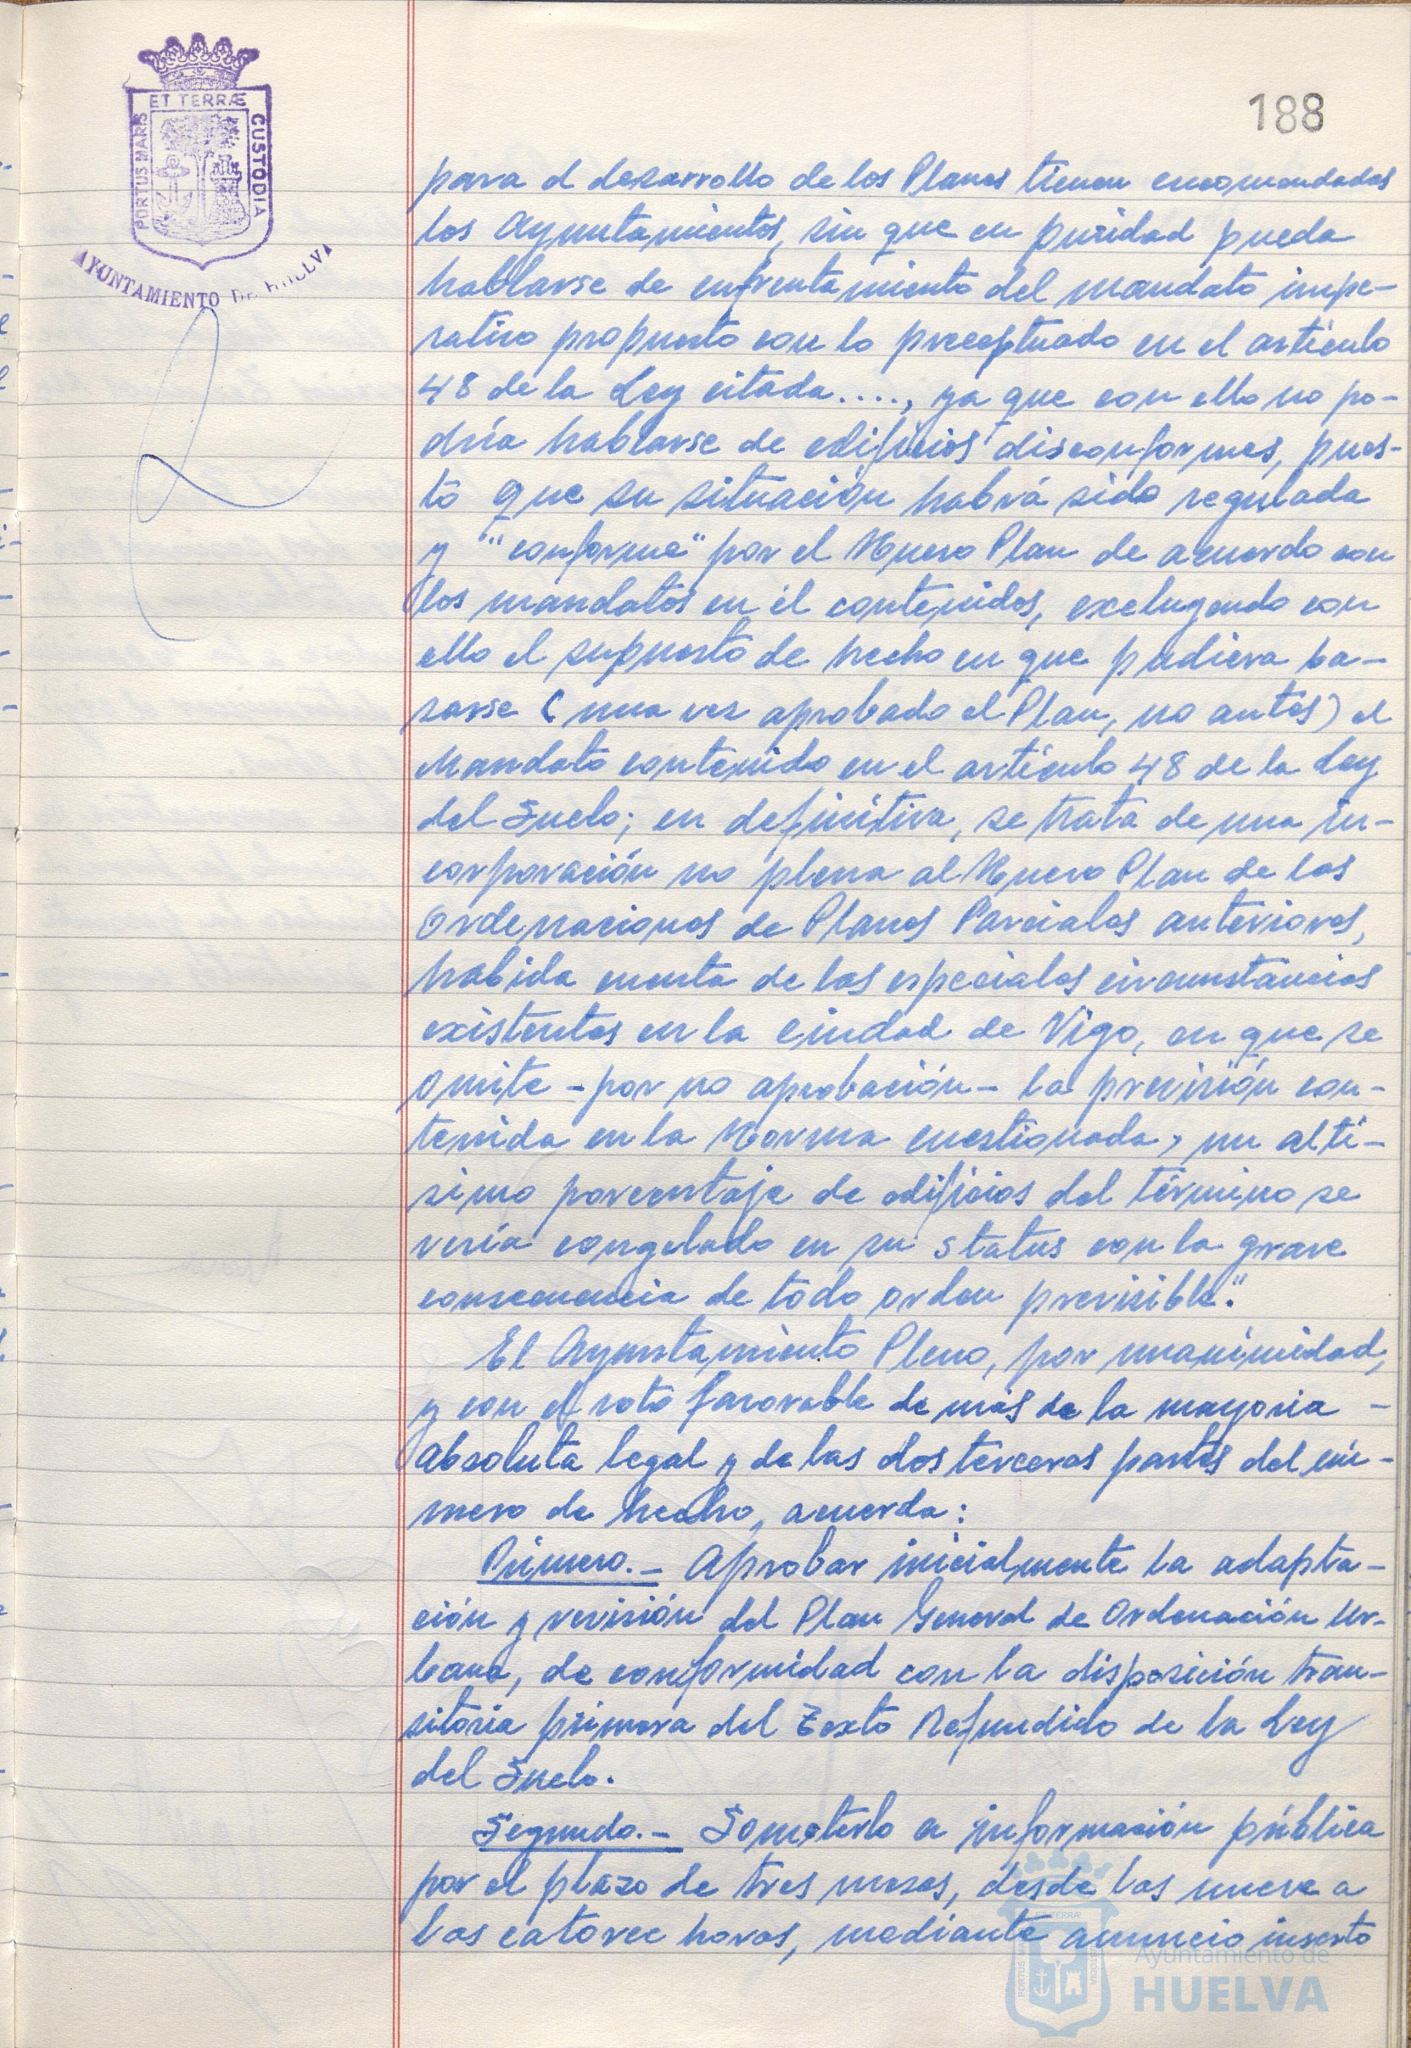 188
ET TERRÆ
PORTUS MARIS
CUSTODIA
AYUNTAMIENTO DE HUELVA
para el desarrollo de los Planes tienen encomendadas
los Ayuntamientos, sin que en puridad pueda
hablarse de enfrentamiento del mandato impe-
rativo propuesto con lo preceptuado en el artículo
48 de la Ley citada...., ya que con ello no po-
dría hablarse de edificios disconformes, pues-
to que su situación habrá sido regulada
y "conforme" por el Nuevo Plan de acuerdo con
los mandatos en él contenidos, excluyendo con
ello el supuesto de hecho en que pudiera ba-
sarse (una vez aprobado el Plan, no antes) el
Mandato contenido en el artículo 48 de la Ley
del Suelo; en definitiva, se trata de una in-
corporación no plena al Nuevo Plan de las
Ordenaciones de Planes Parciales anteriores,
habida cuenta de las especiales circunstancias
existentes en la Ciudad de Vigo, en que se
omite - por no aprobación - la previsión con-
tenida en la Norma cuestionada, un altí-
simo porcentaje de edificios del término se
vería congelado en su status con la grave
consecuencia de todo orden previsible."
El Ayuntamiento Pleno, por unanimidad,
y con el voto favorable de más de la mayoria -
absoluta legal y de las dos terceras partes del nú-
mero de hecho, acuerda:
Primero.- Aprobar inicialmente la adapta-
ción y revisión del Plan General de Ordenación Ur-
bana, de conformidad con la disposición tran-
sitoria primera del Texto Refundido de la Ley
del Suelo.
Segundo.- Someterlo a información pública
por el plazo de tres meses, desde las nueve a
las catorce horas, mediante anuncio inserto
Ayuntamiento de
HUELVA